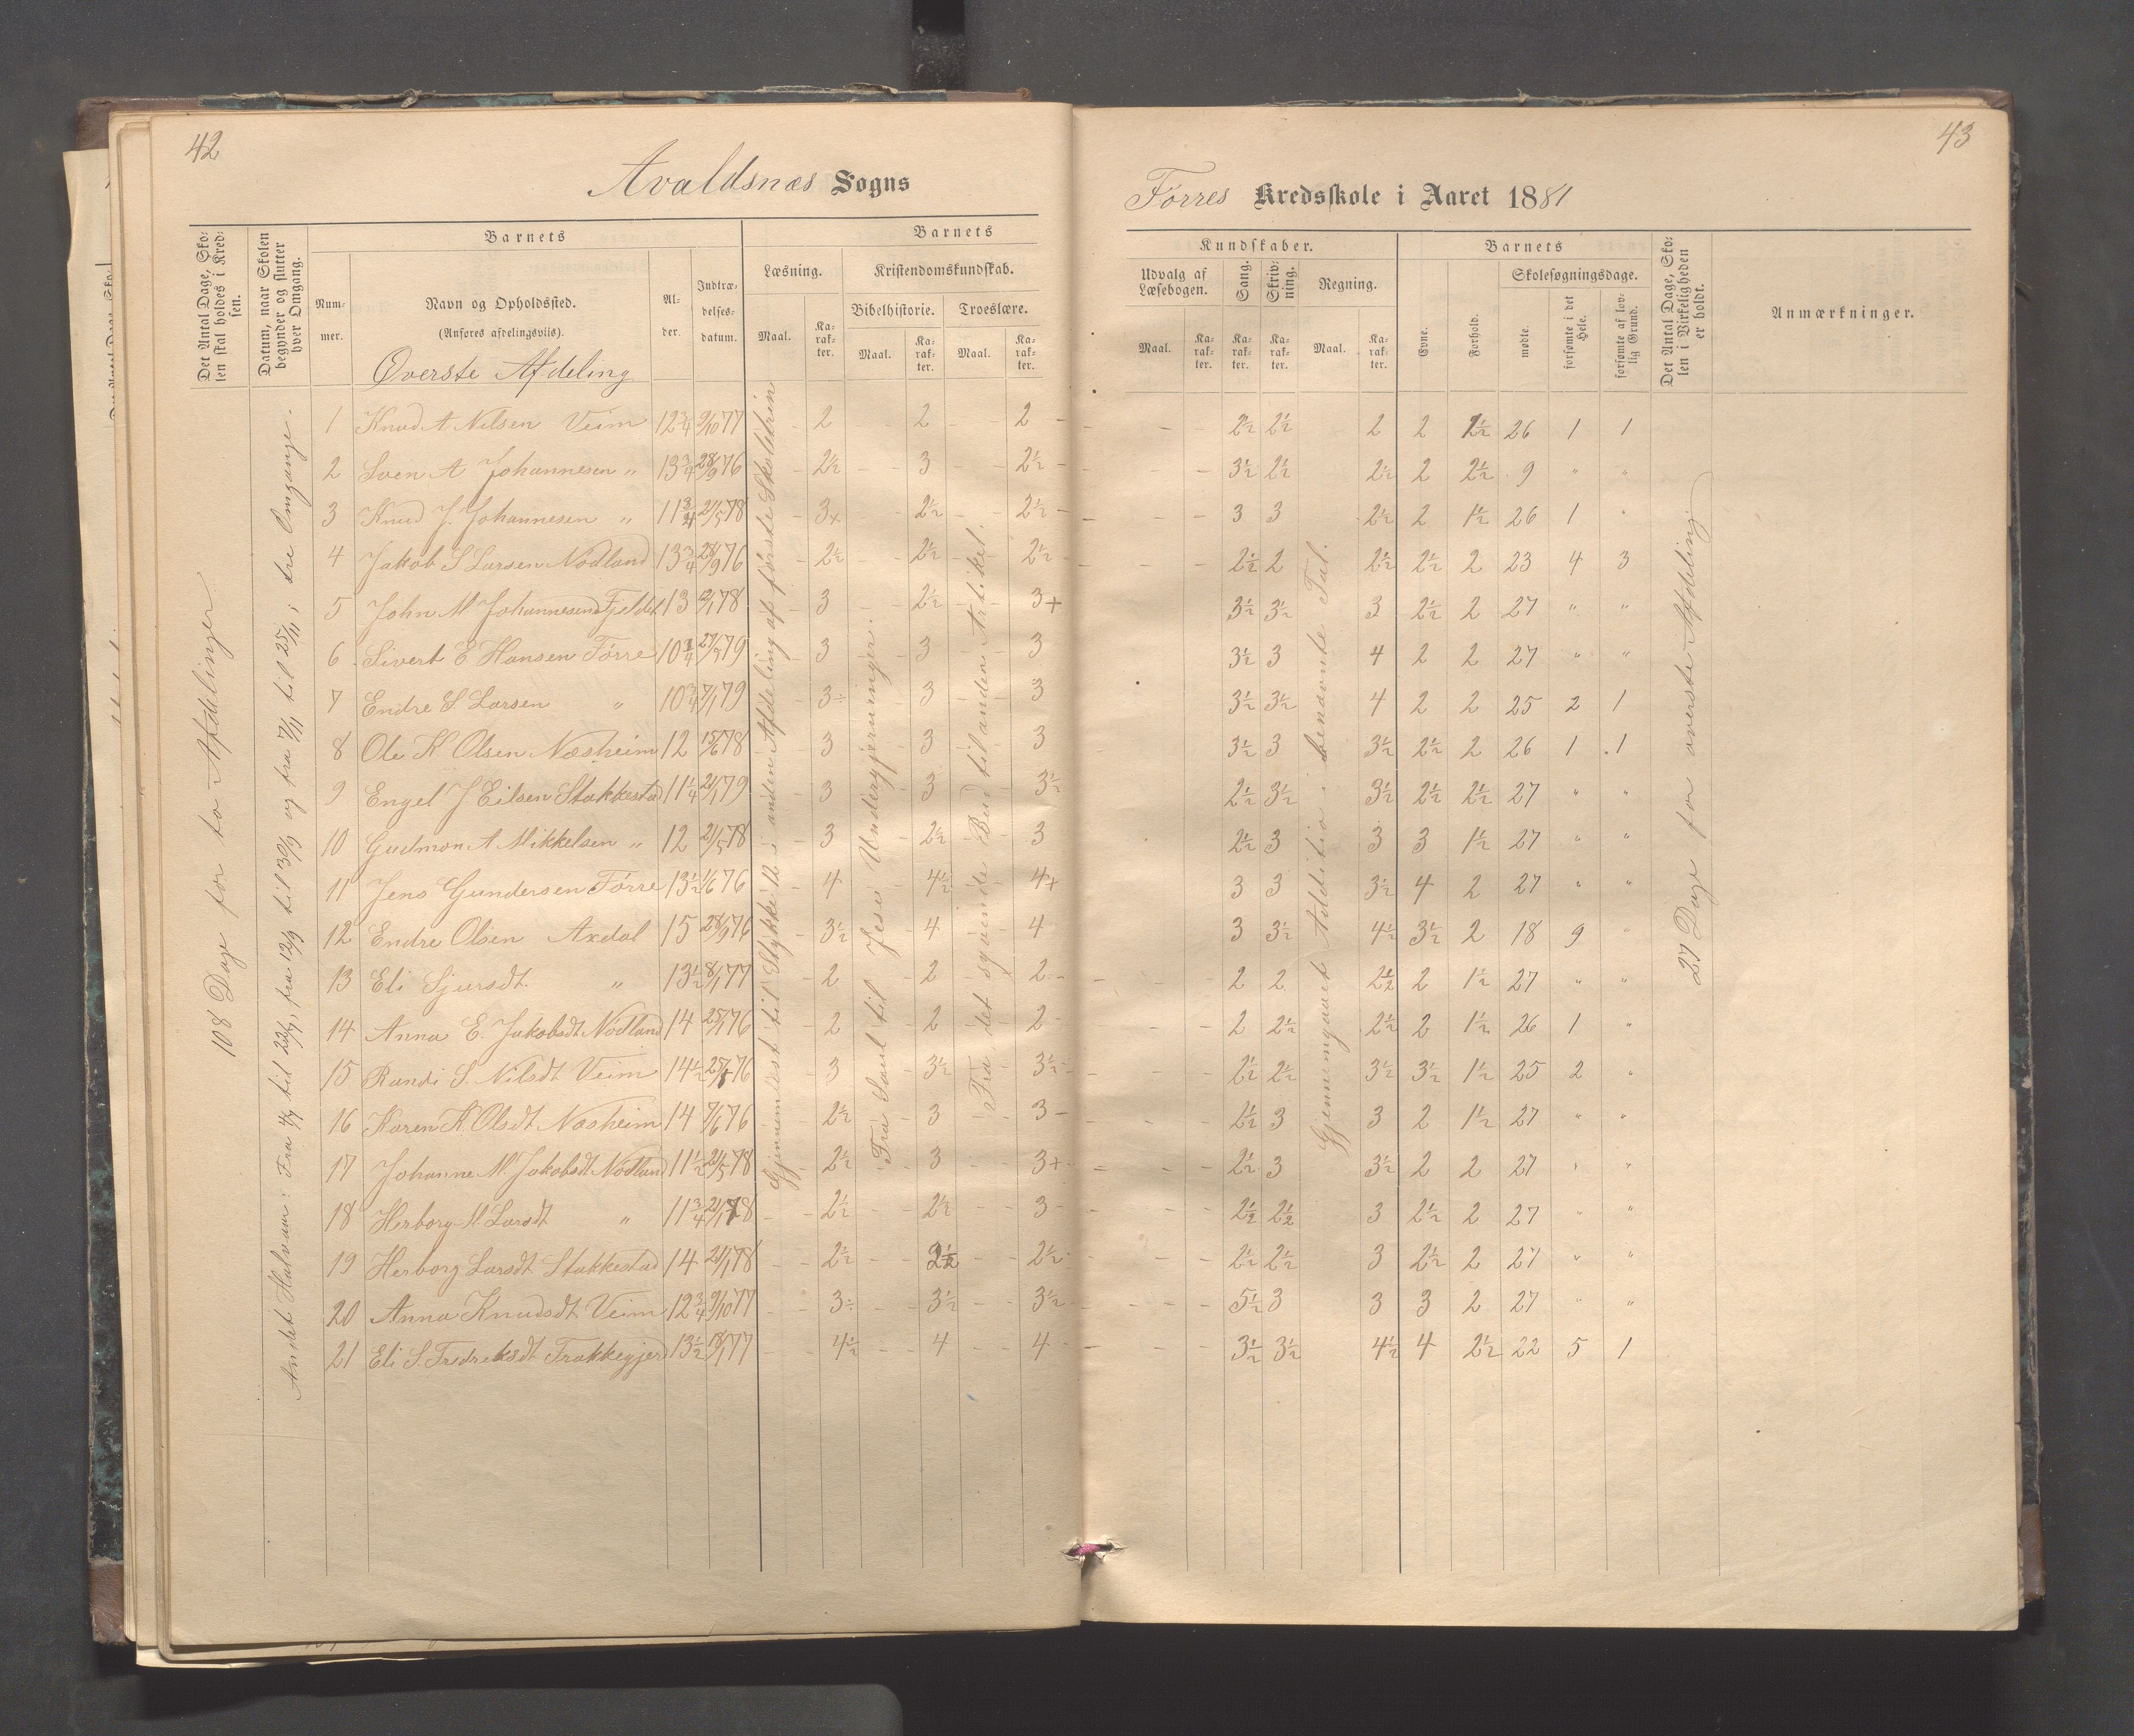 42
Avaldsnæs Sogns
Det Antal Dage, Skolen skal holdes i Kredsen.
Datum, naar Skolen begynder og slutter hver Omgang.
Barnets
Nummer.
Navn og Opholdssted.
(Anføres afdelingsviis).
Alder.
Indtrædelsesdatum.
Barnets
Læsning.
Kristendomskundskab.
Bibelhistorie.
Troeslære.
Maal.
Karakter.
Maal.
Karakter.
Maal.
Karakter.
Øverste Afdeling
108 Dage for to Afdelinger
Andet Halvaar: Fra 4/7 til 22/7, fra 12/9 til 30/9 og fra 7/11 til 25/11; tre Omgange.
Gjennemlæst til Stykke 12 i anden Afdeling af første Skoletrin
Fra Saul til Jesu Undergjerninger.
Fra det syvende Bud til anden Artikel.
1 Knud A Nilsen Veim 12 3/4 9/10 77 2 2 2
2 Sven A Johannesen " 13 3/4 28/9 76 2 1/2 3 2 1/2
3 Knud J. Johannesen " 11 3/4 21/5 78 3+ 2 1/2 2 1/2
4 Jakob S Larsen Nodland 13 3/4 28/9 76 2 1/2 2 1/2 2 1/2
5 John M Johannesen Fjeldet 13 78 3 2 1/2 3+
6 Sivert E Hansen Førre 10 3/4 79 3 3 3
7 Endre S. Larsen " 10 3/4 7/1 79 3÷ 3 3
8 Ole K Olsen Næsheim 12 15/6 78 3 3 3
9 Engel J Eilsen Stakkestad 11 1/4 21/1 79 3 3 3 1/2
10 Gudmon A Mikkelsen " 12 21/5 78 3 2 1/2 3
11 Jens Gundersen Førre 13 1/2 1/6 76 4 4 1/2 4+
12 Endre Olsen Axdal 15 28/9 76 3 1/2 4 4
13 Eli Sjursdt. " 13 1/2 8/1 77 2 2 2
14 Anna E. Jakobsdt Nodland 14 25/1 76 2 2 2
15 Randi S. Nilsdt Veim 14 1/2 76 3 3 1/2 3 1/2
16 Karen K. Olsdt Næsheim 14 7/6 76 2 1/2 3 3
17 Johanne M. Jakobsdt Nodland 11 1/2 21/5 78 2 1/2 3 3+
18 Herborg M Larsdt " 11 3/4 78 2 1/2 2 1/2 3
19 Herborg Larsdt Stakkestad 14 21/1 78 2 1/2 2 1/2
20 Anna Knudsdt Veim 12 3/4 9/10 77 3÷ 3 1/2 3 1/2
21 Eli S. Fredreksdt Frakkegjerd 13 1/2 77 4 1/2 4 4
43
Førres Kredsskole i Aaret 1881
Kundskaber.
Udvalg af Læsebogen.
Sang.
Skrivning.
Regning.
Maal.
Karakter.
Karakter.
Karakter.
Maal.
Karakter.
Barnets
Evne.
Forhold.
Skolesøgningsdage.
mødte.
forsømte i det Hele.
forsømte af lovlig Grund.
Det Antal Dage, Skolen i Virkeligheden er holdt.
Anmærkninger.
Gjennemgaaet Additio i benævnte Tal.
27 Dage for øverste Afdeling
2 1/2 2 1/2 2 2 26 1 1
3 1/2 2 1/2 2 1/2 2 2 1/2 9 " "
3 3 2 1/2 2 1 1/2 26 1 "
2 1/2 2 2 1/2 2 1/2 2 23 4 3
3 1/2 3 1/2 3 2 1/2 2 27 " "
3 1/2 3 4 2 2 27 " "
3 1/2 3 1/2 4 2 2 25 2 1
3 1/2 3 3 1/2 2 1/2 2 26 1 1
2 1/2 3 1/2 3 1/2 2 1/2 2 1/2 27 " "
2 1/2 3 3 3 1 1/2 27 " "
3 3 3 1/2 4 2 27 " "
3 3 1/2 4 1/2 3 1/2 2 18 9 "
2 2 2 1/2 2 1 1/2 27 " "
2 2 1/2 2 1/2 2 1 1/2 26 1 "
2 1/2 2 1/2 3 1/2 3 1/2 1 1/2 25 2 "
2 1/2 3 3 2 1 1/2 27 " "
2 1/2 3 3 1/2 2 2 27 " "
2 1/2 2 1/2 3 2 1/2 2 27 " "
2 1/2 2 1/2 3 2 1/2 2 27 " "
5 1/2 3 3 3 2 27 " "
3 1/2 3 1/2 4 1/2 4 2 1/2 22 5 1